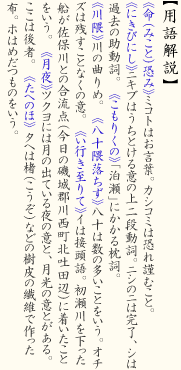 【用語解説】
《命(みこと)恐み》ミコトはお言葉。カシコミは恐れ謹むこと。
《にきびにし》ニキブはうちとける意の上二段動詞。ニシのニは完了、シは
過去の助動詞。《こもりくの》「泊瀬」にかかる枕詞。
《川隈》川の曲りめ。《八十隈落ちず》八十は数の多いことをいう。オチ
ズは残すことなくの意。《い行き至りて》イは接頭語。初瀬川を下った
船が佐保川との合流点(今日の磯城郡川西町北吐田辺)に着いたこと
をいう。《月夜》ツクヨには月の出ている夜の意と、月光の意とがある。
ここは後者。《たへのほ》タヘは栲(こうぞ)などの樹皮の繊維で作った
布。ホは めだつものをいう。